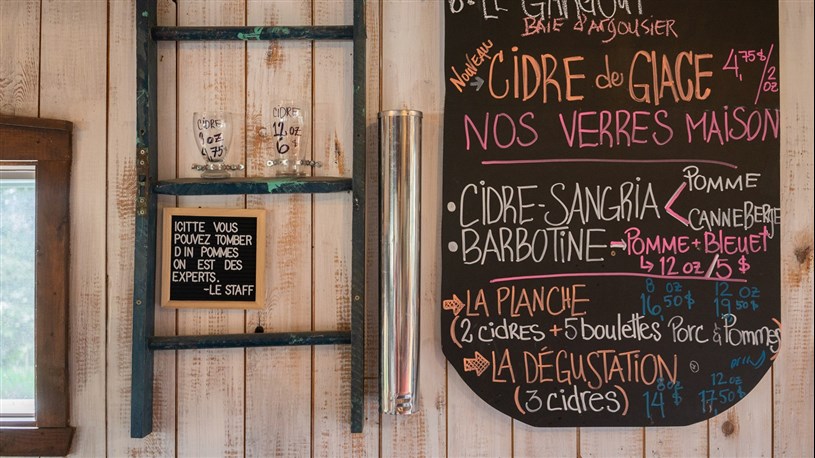 CIDRE
9 oz
4.75
CIDRE
12 oz
6$
ICITTE VOUS
POUVEZ TOMBER
D IN POMMES
ON EST DES
EXPERTS.
-LE STAFF
LE GARGOUT
BAIE D'ARGOUSIER
NOUVEAU
CIDRE de GLACE 4,75$/2 oz
NOS VERRES MAISON
CIDRE-SANGRIA
POMME
CANNEBERGE
BARBOTINE POMME + BLEUET
12 oz/5$
LA PLANCHE
8 oz 12 oz
16,50$ 19,50$
(2 cidres + 5 boulettes Porc & Pommes)
LA DÉGUSTATION
(3 cidres)
12 oz
14$ 17,50$